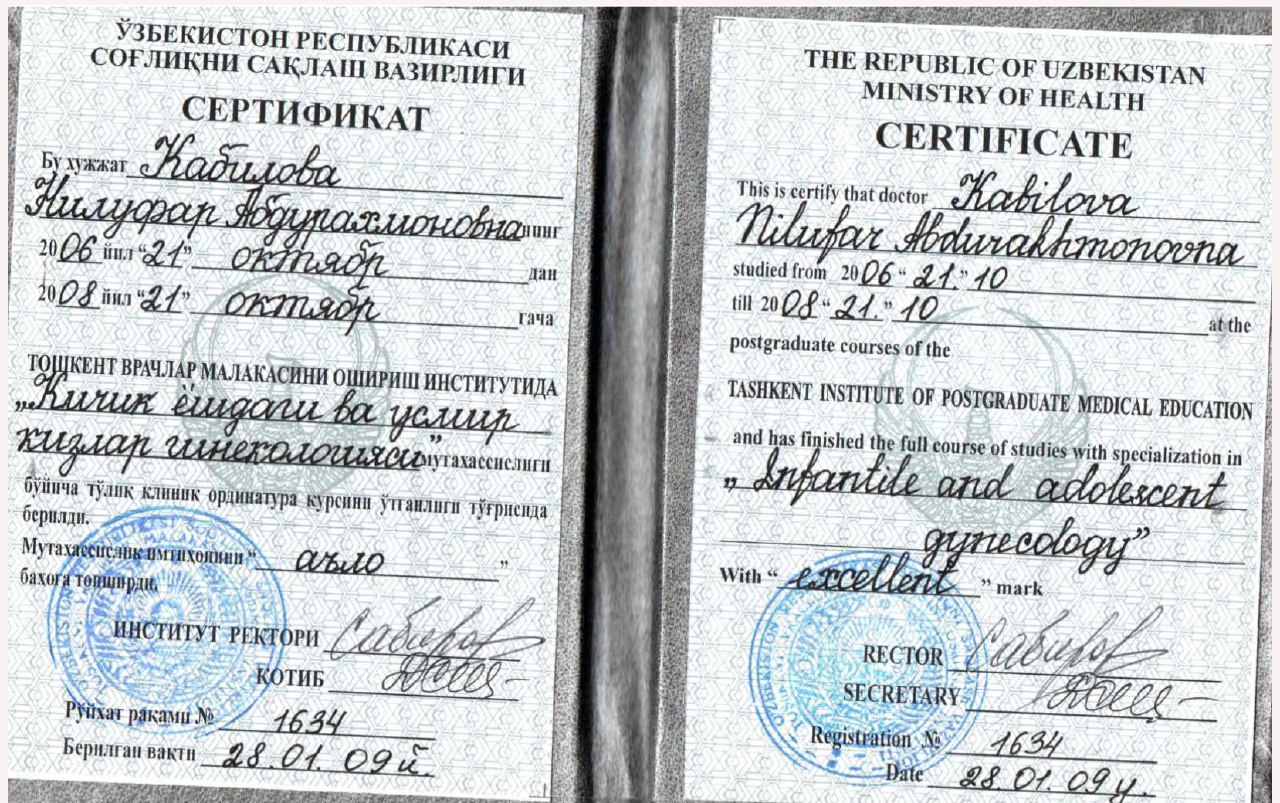 ЎЗБЕКИСТОН РЕСПУБЛИКАСИ
СОҒЛИҚНИ САҚЛАШ ВАЗИРЛИГИ
СЕРТИФИКАТ
Бу ҳужжат Кабилова
Нилуфар Абдурахмоновнанинг
2006 йил “21” октябр дан
2008 йил “21” октябр гача
ТОШКЕНТ ВРАЧЛАР МАЛАКАСИНИ ОШИРИШ ИНСТИТУТИДА
„Кичик ёшдаги ва усмир
кизлар гинекологияси” мутахассислиги
бўйича тўлиқ клиник ординатура курсини ўтганлиги тўғрисида
берилди.
Мутахассислик имтиҳонини “ аъло ”
баҳога топширди.
ИНСТИТУТ РЕКТОРИ
КОТИБ
Рўйхат рақами № 1634
Берилган вақти 28.01.09й.
THE REPUBLIC OF UZBEKISTAN
MINISTRY OF HEALTH
CERTIFICATE
This is certify that doctor Kabilova
Nilufar Abdurakhmonovna
studied from 2006 “ 21.” 10
till 2008 “ 21.” 10 at the
postgraduate courses of the
TASHKENT INSTITUTE OF POSTGRADUATE MEDICAL EDUCATION
and has finished the full course of studies with specialization in
„ Infantile and adolescent
gynecology”
With “ excellent ” mark
RECTOR
SECRETARY
Registration № 1634
Date 28.01.09y.